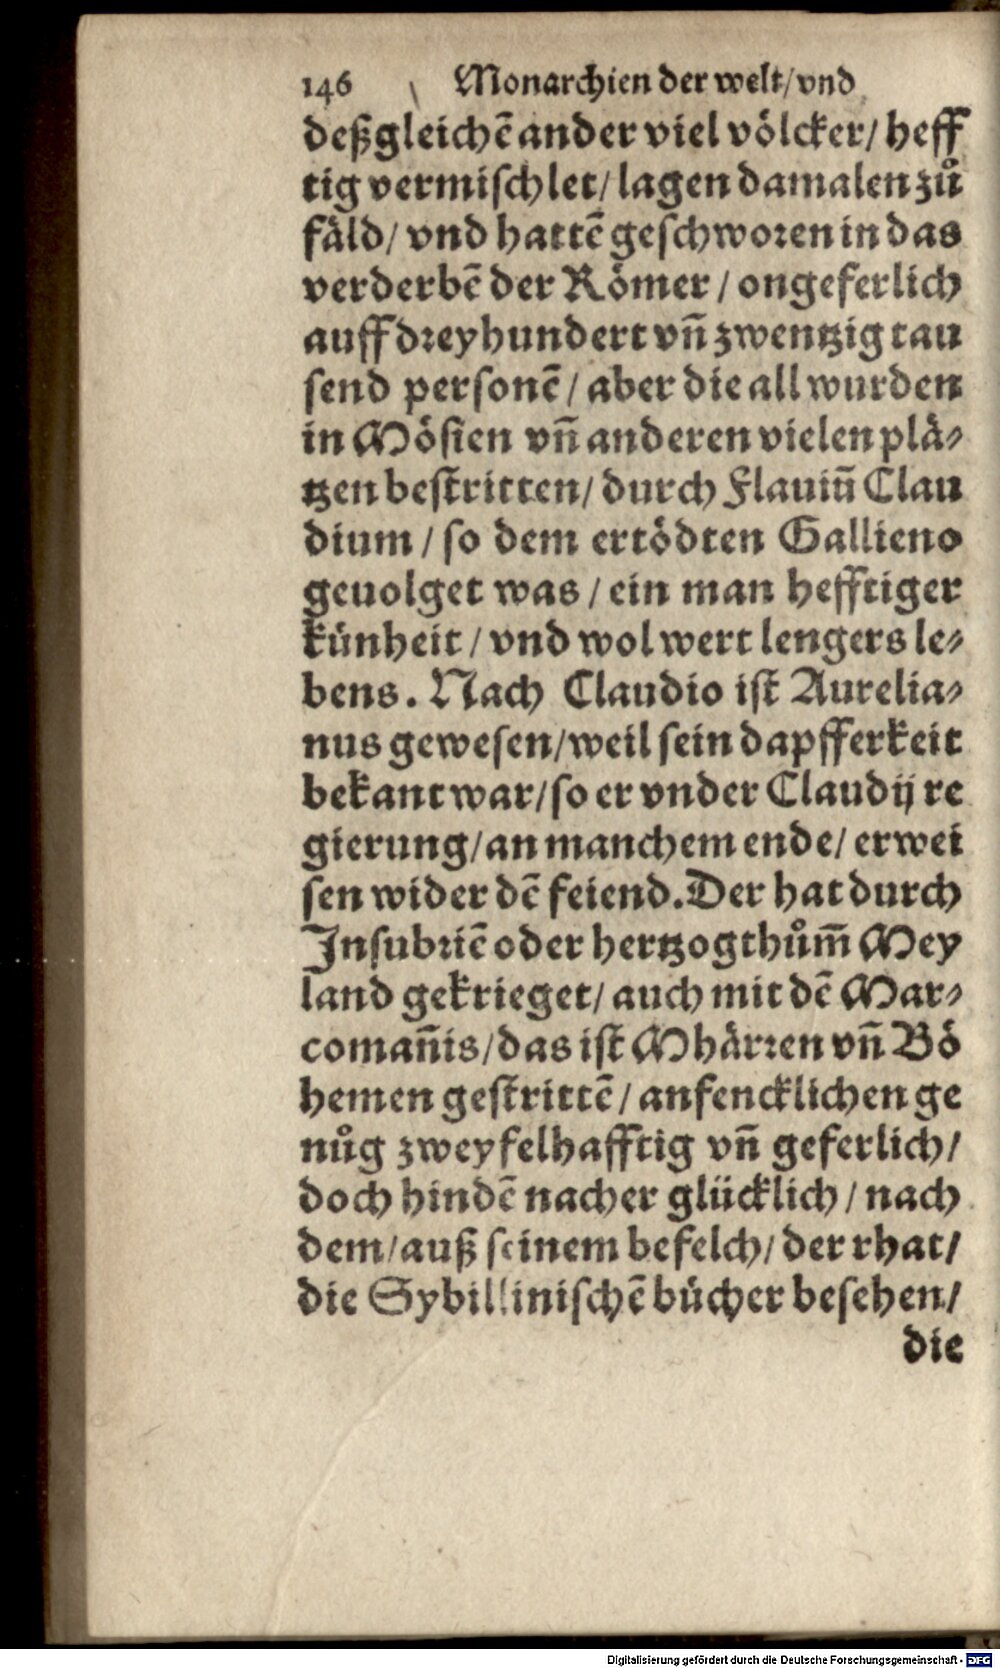 146 Monarchien der welt/ vnd
deßgleichē ander viel völcker/ heff
tig vermischlet/ lagen damalen zů
fäld/ vnd hattē geschworen in das
verderbē der Römer / ongeferlich
auff dreyhundert vñ zwentzig tau
send personē / aber die all wurden
in Mösien vñ anderen vielen plä⸗
tzen bestritten/ durch Flauiū Clau
dium / so dem ertödten Gallieno
geuolget was / ein man hefftiger
künheit / vnd wol wert lengers le⸗
bens. Nach Claudio ist Aurelia⸗
nus gewesen/ weil sein dapfferkeit
bekant war/ so er vnder Claudij re
gierung/ an manchem ende/ erwei
sen wider dē feiend. Der hat durch
Insubriē oder hertzogthům̄ Mey
land gekrieget/ auch mit dē Mar⸗
comañis/ das ist Mhärren vñ Bö
hemen gestrittē / anfencklichen ge
nůg zweyfelhafftig vñ geferlich/
doch hindē nacher glücklich / nach
dem/ auß seinem befelch/ der rhat/
die Sybillinischē bücher besehen/
die
Digitalisierung gefördert durch die Deutsche Forschungsgemeinschaft - DFG